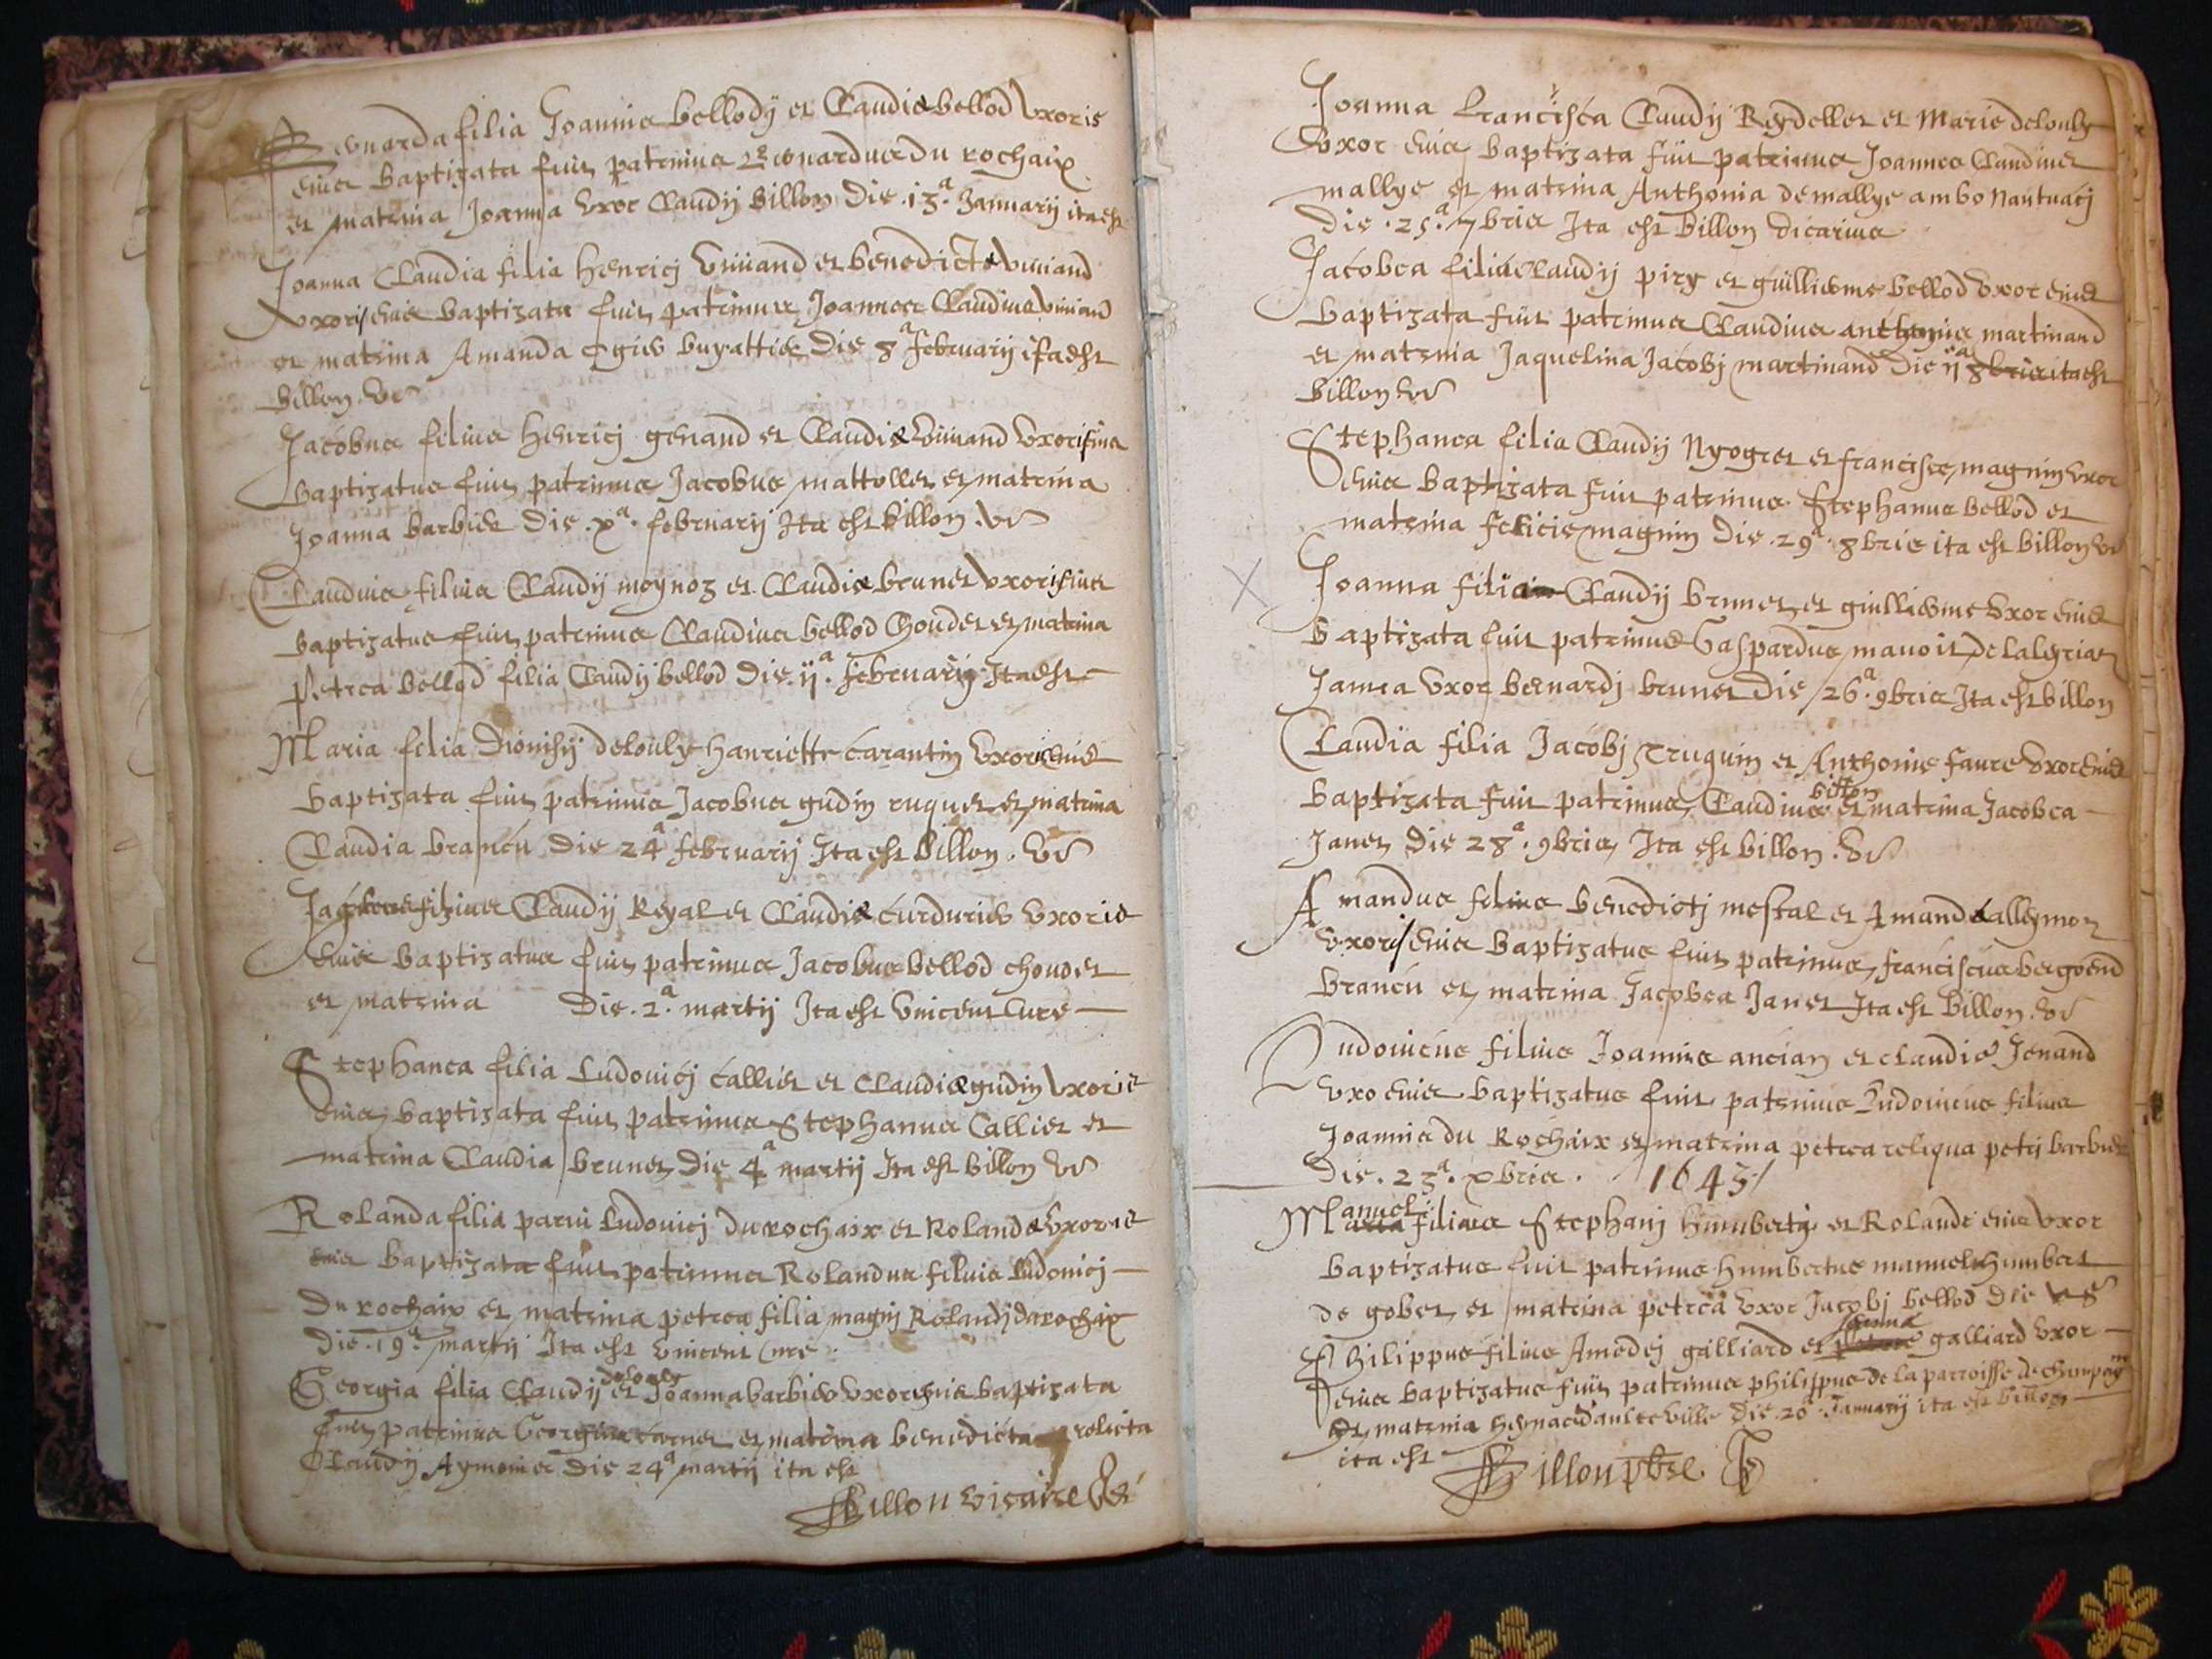 Bernarda filia Joannis bellody et Claudiæ bellod Vxoris
eius baptizata fuit patrinus Bernardus du rochaix
et matrina Joanna Vxor Claudij billon die .13.a Januarij ita est
Joanna Claudia filia henrici Viuiand et benedictæ Viuiand
Vxoris eius baptizata fuit patrinus Joannes Claudius Viuiand
et matrina Amanda buyattier die 8a februarij ita est
billon Vr
Jacobus filius henrici genand et Claudiæ Viuiand Vxoris eius
baptizatus fuit patrinus Jacobus mattollet et matrina
Joanna barbier die .xa. februarij Ita est billon .Vr
Claudius filius Claudij moynoz et Claudiæ brunet Vxoris eius
baptizatus fuit patrinus Claudius bellod Choudet et matrina
Petrea bellod filia Claudij bellod die ij.a februarij Ita est
Maria filia Dionisij delouly hanriette carantin Vxoris eius
baptizata fuit patrinus Jacobus gudin ruquet et matrina
Claudia brancu die 24a februarij Ita est billon . Vr
filius Claudij Reyal et Claudiæ curdurier Vxoris
eius baptizatus fuit patrinus Jacobus bellod choudet
et matrina die .2.a martij Ita est Vincent Cure
Stephanea filia Ludouici callier et Claudiæ gudin Vxoris
eius baptizata fuit patrinus Stephanus Callier et
matrina Claudia brunet die 4a martij Ita est billon Vr
Rolanda filia parui Ludouici du rochaix et Rolandæ Vxoris
eius baptizata fuit patrinus Rolandus filius Ludouici
du rochaix et matrina petrea filia magni Rolandi du rochaix
die .19.a martij Ita est Vincent Cure .
Georgia filia Claudij delouly et Joanna barbier Vxoris eius baptizata
fuit patrinus Georgius carrier et matrina benedicta relicta
Claudij Aymonier die 24a martij ita est
Billon vicaire Vr
Joanna francisca Claudij Reydellet et Marie delouly
Vxor eius baptizata fuit patrinus Joannes Claudius
mallye et matrina Anthonia de mallye ambo Nantuaci
die .25.a 7bris Ita est billon vicarius
Jacobea filia Claudij piry et guillierme bellod Vxor eius
baptizata fuit patrinus Claudius anthonius martinand
et matrina Jaquelina Jacobi martinand die ija 8bris ita est
billon Vr
Stephanea filia Claudij Nyogret et francisce magnin Vxor
eius baptizata fuit patrinus Stephanus bellod et
matrina felicie magnin die .29a. 8bris ita est billon Vr
X Joanna filia Claudij brunet et guillierme Vxor eius
baptizata fuit patrinus Gaspardus mauoit de laleyriat
Janea Vxor bernardi brunet die 26a. 9bris Ita est billon
Claudia filia Jacobi Truquin et Anthonie faure Vxor eius
baptizata fuit patrinus Claudius billon et matrina Jacobea
Janet die 28a. 9bris Ita est billon . Vr
Amandus filius benedicti mestal et Amandæ alleymon
Vxoris eius baptizatus fuit patrinus franciscus bergoend
brancu et matrina Jacobea Janet Ita est billon . Vr
Ludouicus filius Joannis ancian et claudiæ Jenand
Vxo eius baptizatus fuit patrinus Ludouicus filius
Joannis du Rochaix et matrina petrea reliqua petri barbier
die .23a. xbris . 1643/
Manuel filius Stephani humberti et Rolande eius Vxor
baptizatus fuit patrinus humbertus manuel humbert
de gobet et matrina petrea Vxor Jacobi bellod die
Philippus filius Amedei galliard et Joanna galliard Vxor
eius baptizatus fuit patrinus philippus de la parroisse de champagn
et matrina haulteville die 20a Januarij ita est billon
ita est Billon pbre